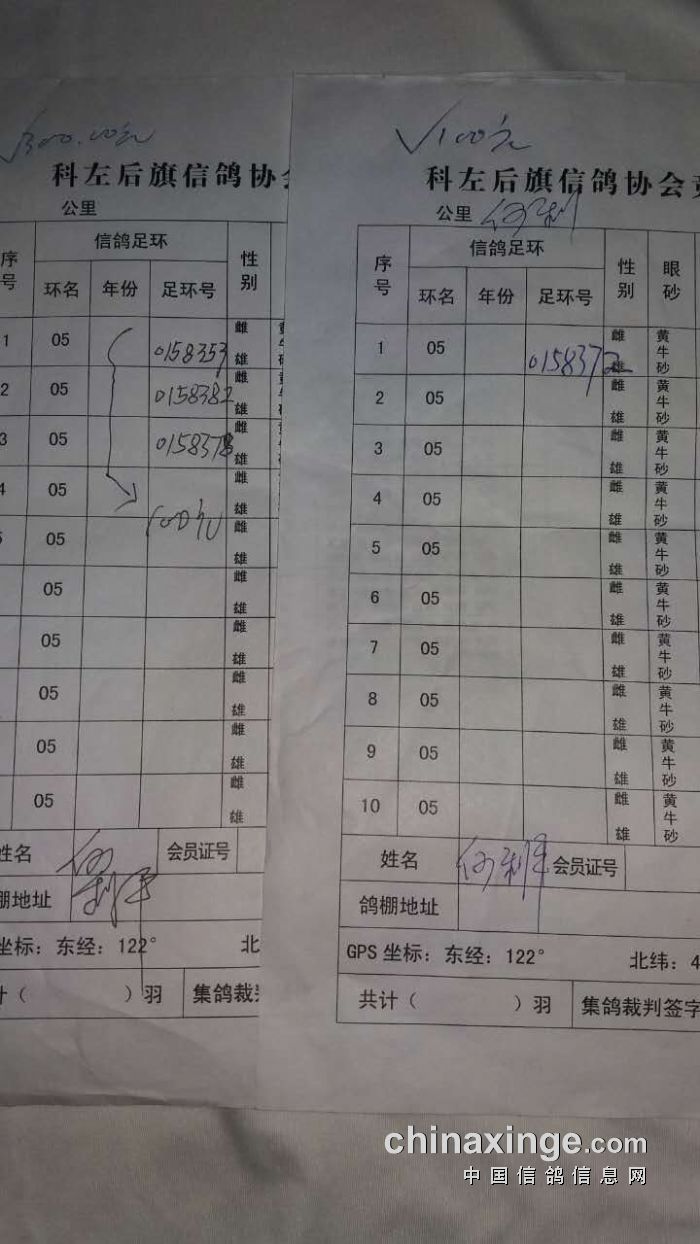 √300.00元
科左后旗信鸽协会
公里
序号 信鸽足环 性别
环名 年份 足环号
1 05 0158353 雌 雄
2 05 0158382 雌 雄
3 05 0158378 雌 雄
4 05 雌 雄
05 雌 雄
05 雌 雄
05 雌 雄
05 雌 雄
05 雌 雄
05 雌 雄
姓名 何利军 会员证号
棚地址
坐标：东经：122° 北
计（ ）羽 集鸽裁判
√100元
科左后旗信鸽协会
公里 何利
序号 信鸽足环 性别 眼砂
环名 年份 足环号
1 05 0158372 雌 雄 黄 牛 砂
2 05 雌 雄 黄 牛 砂
3 05 雌 雄 黄 牛 砂
4 05 雌 雄 黄 牛 砂
5 05 雌 雄 黄 牛 砂
6 05 雌 雄 黄 牛 砂
7 05 雌 雄 黄 牛 砂
8 05 雌 雄 黄 牛 砂
9 05 雌 雄 黄 牛 砂
10 05 雌 雄 黄 牛 砂
姓名 何利军 会员证号
鸽棚地址
GPS 坐标：东经：122° 北纬：4
共计（ ）羽 集鸽裁判签字
chinaxinge.com
中国信鸽信息网